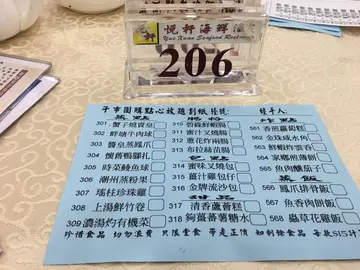 悅軒海鮮酒
Yue Xuan Seafood Restaurant
206
午市圍購點心放題劃紙 檯號: 經手人:
蒸點
301 蟹子燒賣皇
302 鮮牛肉球
303 醬皇蒸鳳爪
304 懷舊鴨腳扎
305 時菜鯪魚球
306 潮州蒸粉果
307 瑤柱珍珠雞
308 上湯鮮竹卷
309 濃湯灼有機菜
腸粉
310 碧綠鮮蝦腸
311 蜜汁叉燒腸
312 蔥花炸兩腸
313 布拉菜苗腸
包點
314 蜜味叉燒包
315 薑汁糖包仔
316 金牌流沙包
甜品
317 清香蘆薈糕
318 薑薯糖水
炸點
561 香煎蘿蔔糕
562 金珠咸水角
563 鮮蝦炸雲吞
564 家鄉煎薄餅
565 魚肉釀茄子
蒸飯
566 鳳爪排骨飯
567 魚香肉餅飯
568 蟲草花雞飯
珍惜食品 切勿浪費 只限堂食 帶走正價 如剩餘食品 每款$15計